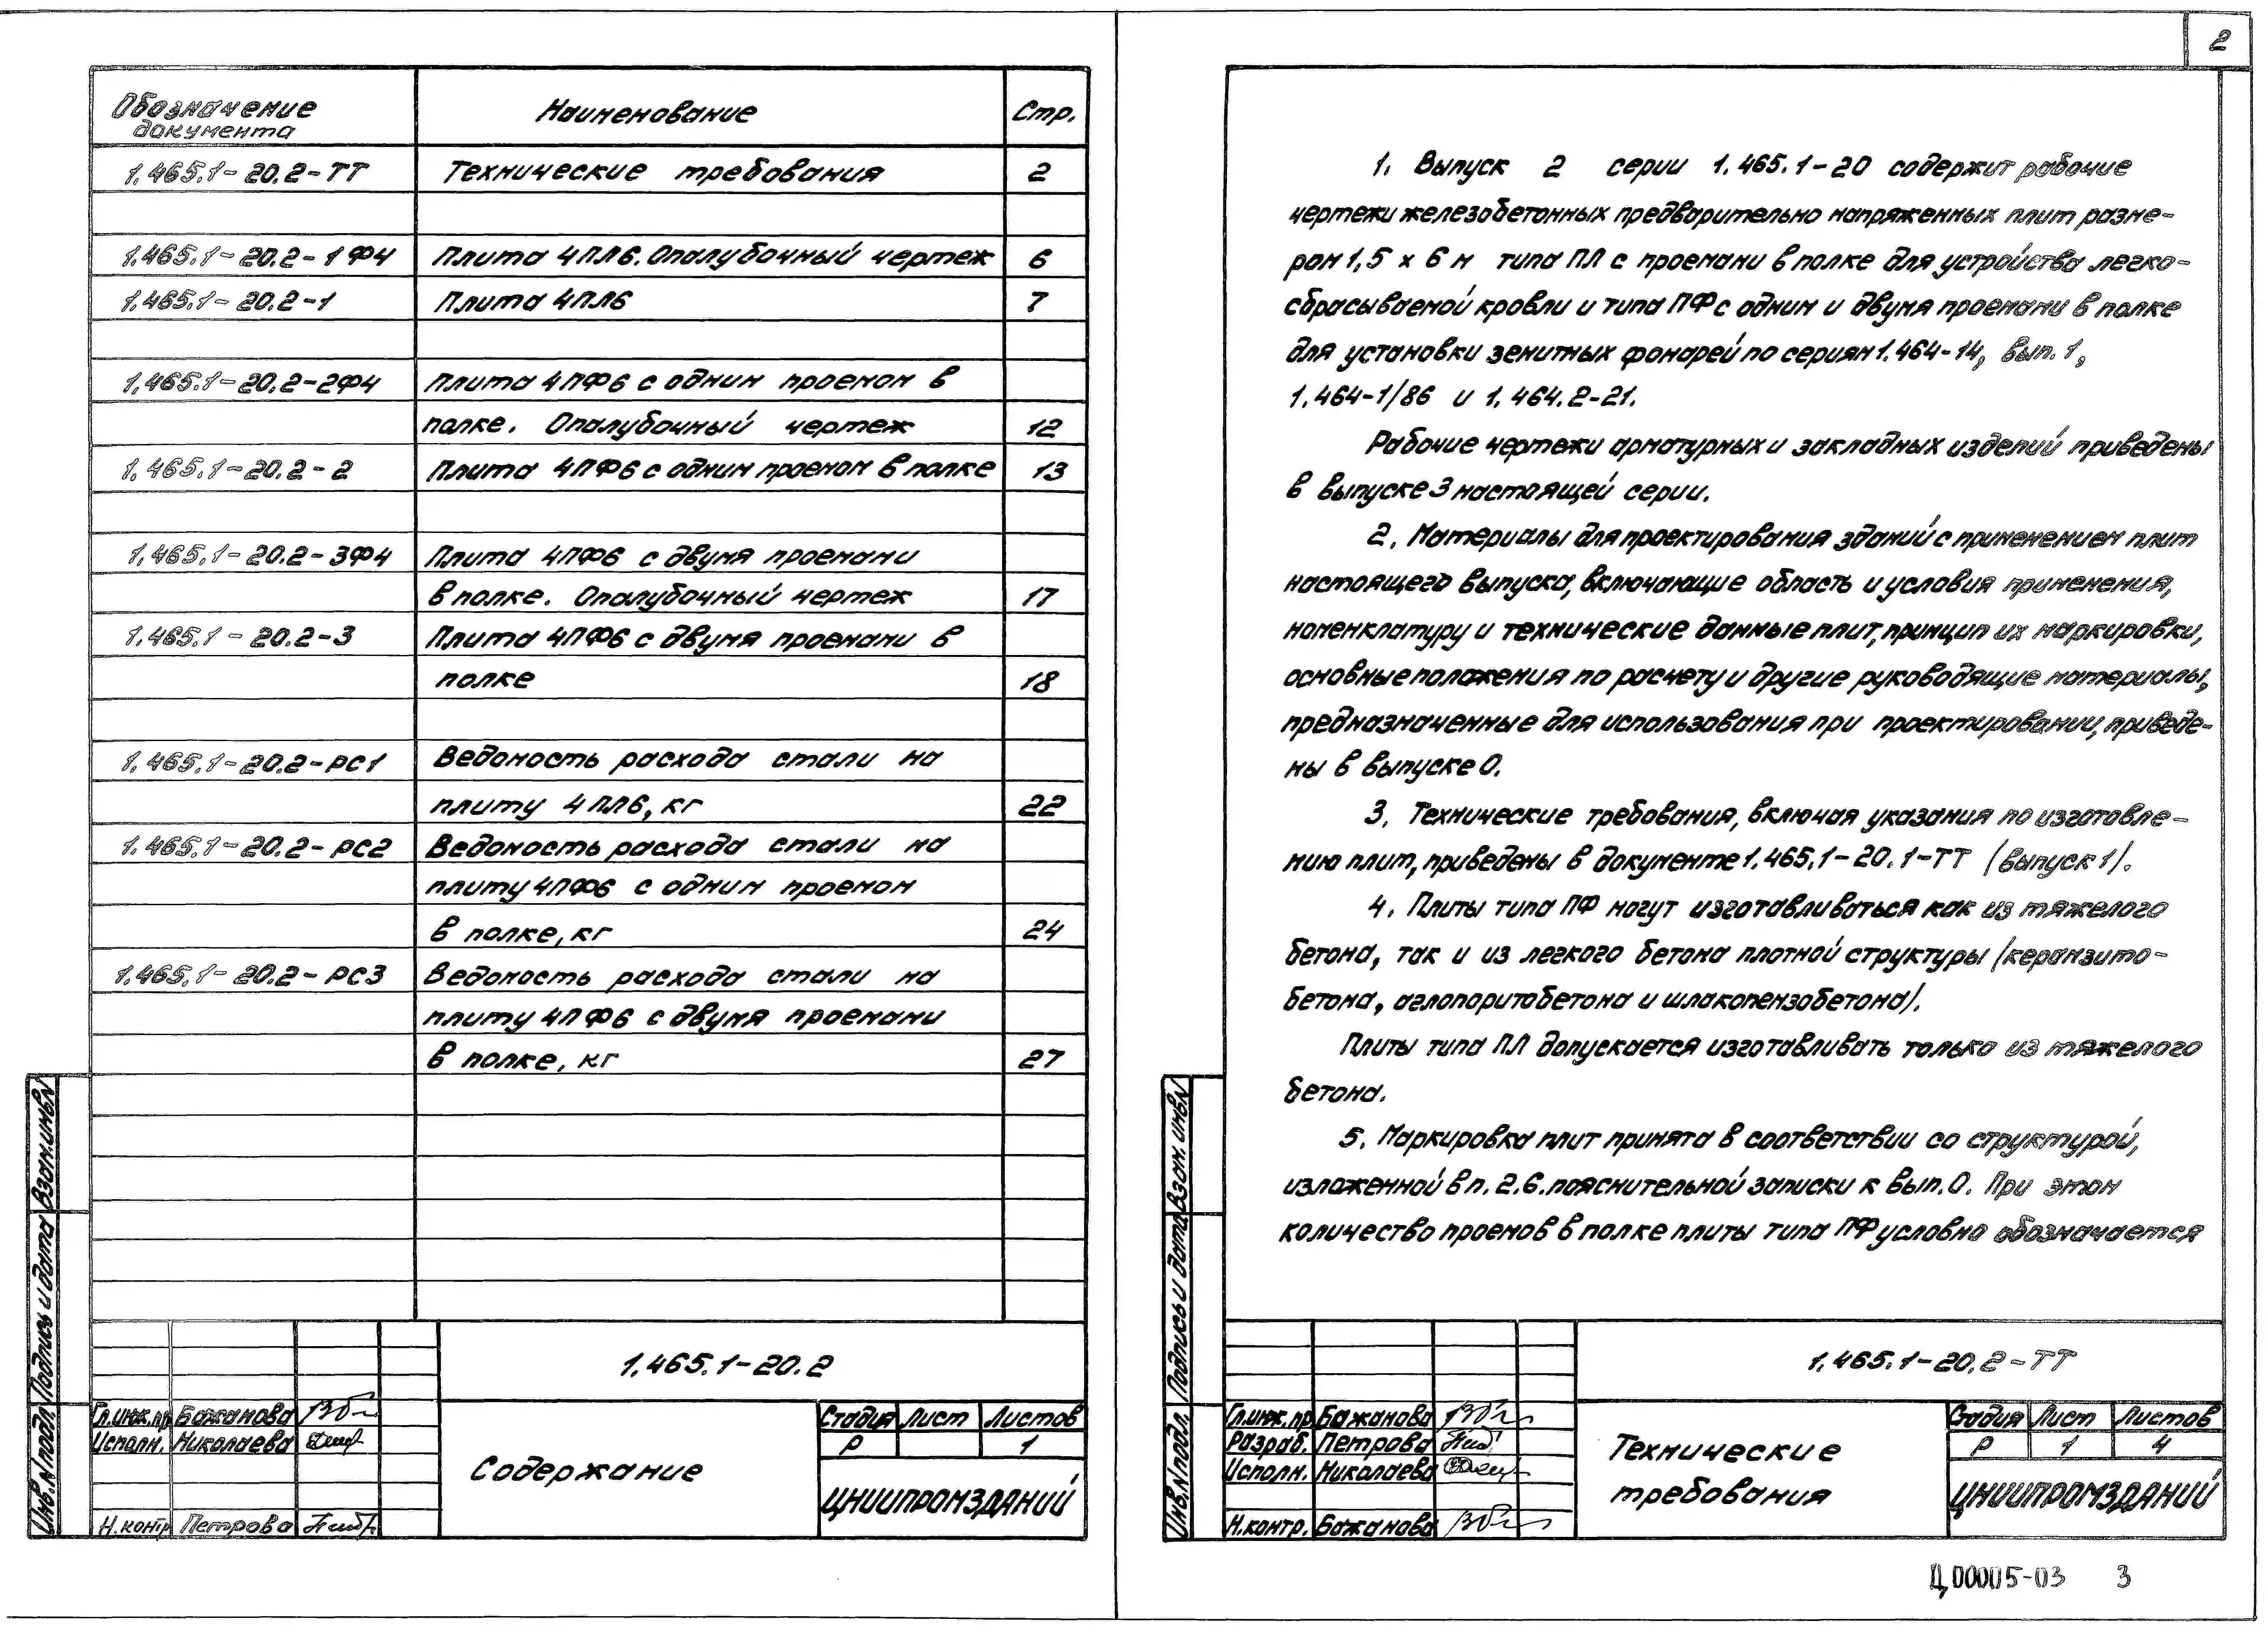 Обозначение документа Наименование Стр.
1.465.1-20.2-ТТ Технические требования 2
1.465.1-20.2-1ФЧ Плита 4ПЛ6. Опалубочный чертеж 6
1.465.1-20.2-1 Плита 4ПЛ6 7
1.465.1-20.2-2ФЧ Плита 4ПФ6 с одним проемом в
полке. Опалубочный чертеж 12
1.465.1-20.2-2 Плита 4ПФ6 с одним проемом в полке 13
1.465.1-20.2-3ФЧ Плита 4ПФ6 с двумя проемами
в полке. Опалубочный чертеж 17
1.465.1-20.2-3 Плита 4ПФ6 с двумя проемами в
полке 18
1.465.1-20.2-РС1 Ведомость расхода стали на
плиту 4ПЛ6, кг 22
1.465.1-20.2-РС2 Ведомость расхода стали на
плиту 4ПФ6 с одним проемом
в полке, кг 24
1.465.1-20.2-РС3 Ведомость расхода стали на
плиту 4ПФ6 с двумя проемами
в полке, кг 27
Взам.инв.N
Подпись и дата
Инв.N подл.
1.465.1-20.2
Гл.инж.пр. Бажанова
Исполн. Николаева
Н.контр. Петрова
Содержание
Стадия Лист Листов
Р 1
ЦНИИПРОМЗДАНИЙ
2
1. Выпуск 2 серии 1.465.1-20 содержит рабочие
чертежи железобетонных предварительно напряженных плит разме-
ром 1,5 х 6 м типа ПЛ с проемами в полке для устройства легко-
сбрасываемой кровли и типа ПФ с одним и двумя проемами в полке
для установки зенитных фонарей по сериям 1.464-14, вып. 1,
1.464-1/86 и 1.464.2-21.
Рабочие чертежи арматурных и закладных изделий приведены
в выпуске 3 настоящей серии.
2. Материалы для проектирования зданий с применением плит
настоящего выпуска, включающие область и условия применения,
номенклатуру и технические данные плит, принцип их маркировки,
основные положения по расчету и другие руководящие материалы,
предназначенные для использования при проектировании, приведе-
ны в выпуске 0.
3. Технические требования, включая указания по изготовле-
нию плит, приведены в документе 1.465.1-20.1-ТТ (выпуск 1).
4. Плиты типа ПФ могут изготавливаться как из тяжелого
бетона, так и из легкого бетона плотной структуры (керамзито-
бетона, аглопоритобетона и шлакопемзобетона).
Плиты типа ПЛ допускается изготавливать только из тяжелого
бетона.
5. Маркировка плит принята в соответствии со структурой,
изложенной в п. 2.6. пояснительной записки к вып. 0. При этом
количество проемов в полке плиты типа ПФ условно обозначается
Взам. инв.N
Подпись и дата
Инв.N подл.
1.465.1-20.2-ТТ
Гл.инж.пр. Бажанова
Разраб. Петрова
Исполн. Николаева
Н.контр. Бажанова
Технические
требования
Стадия Лист Листов
Р 1 4
ЦНИИПРОМЗДАНИЙ
Ц00005-03 3